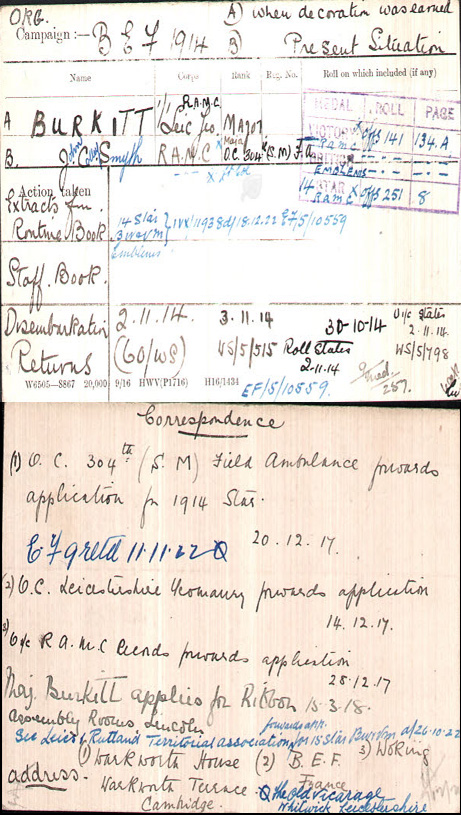 ORG.
A) when decoration was earned
Campaign :— B E F 1914
B) Present Situation
Name Corps Rank Reg. No. Roll on which included (if any)
MEDAL ROLL PAGE
R.A.M.C.
A BURKITT 1/1 Leic Yeo. Major
VICTORY R.A.M.C. Offs 141 134.A.
B. John Colley Smyth R.A.M.C. × Major O.C. 304th (S.M) F.A.
BRITISH —do— —do—
EMBLEMS
14 STAR R.A.M.C × Offs 251 8
Action taken
Extracts fm
Routine Book 14 Star
EF/5/10559
Emblems
Staff Book.
Disembarkation 2.11.14. 3.11.14 30-10-14 O i/c states 2.11.14
Returns (60/WS) WS/5/515 Roll States 2.11.14 WS/5/798
257.
W6505—8867 20,000 9/16 HWV(P1716) H16/1434
EF/5/10559.
Correspondence
(1) O.C. 304th (S.M) Field Ambulance forwards
application for 1914 Star.
20.12.17.
E F gretd 11.11.22 Q
(2) O.C. Leicestershire Yeomanry forwards application
14.12.17.
3) O i/c R.A.M.C Records forwards application
28.12.17
Maj. Burkitt applies for Ribbon 15.3.18.
Assembly Rooms Lincoln
Sec Leics & Rutland Territorial association forwards app. for 15 Star d/20.10.22
address. (1) Warkworth House (2) B.E.F. France 3) Woking
Warkworth Terrace.
Cambridge.
Q The Old Vicarage
Whitwick Leicestershire